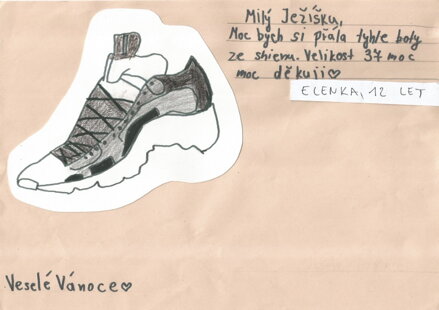 Milý Ježíšku,
Moc bych si přála tyhle boty
ze shienu. Velikost 37 moc
moc děkuji♡
ELENKA, 12 LET
Veselé Vánoce♡